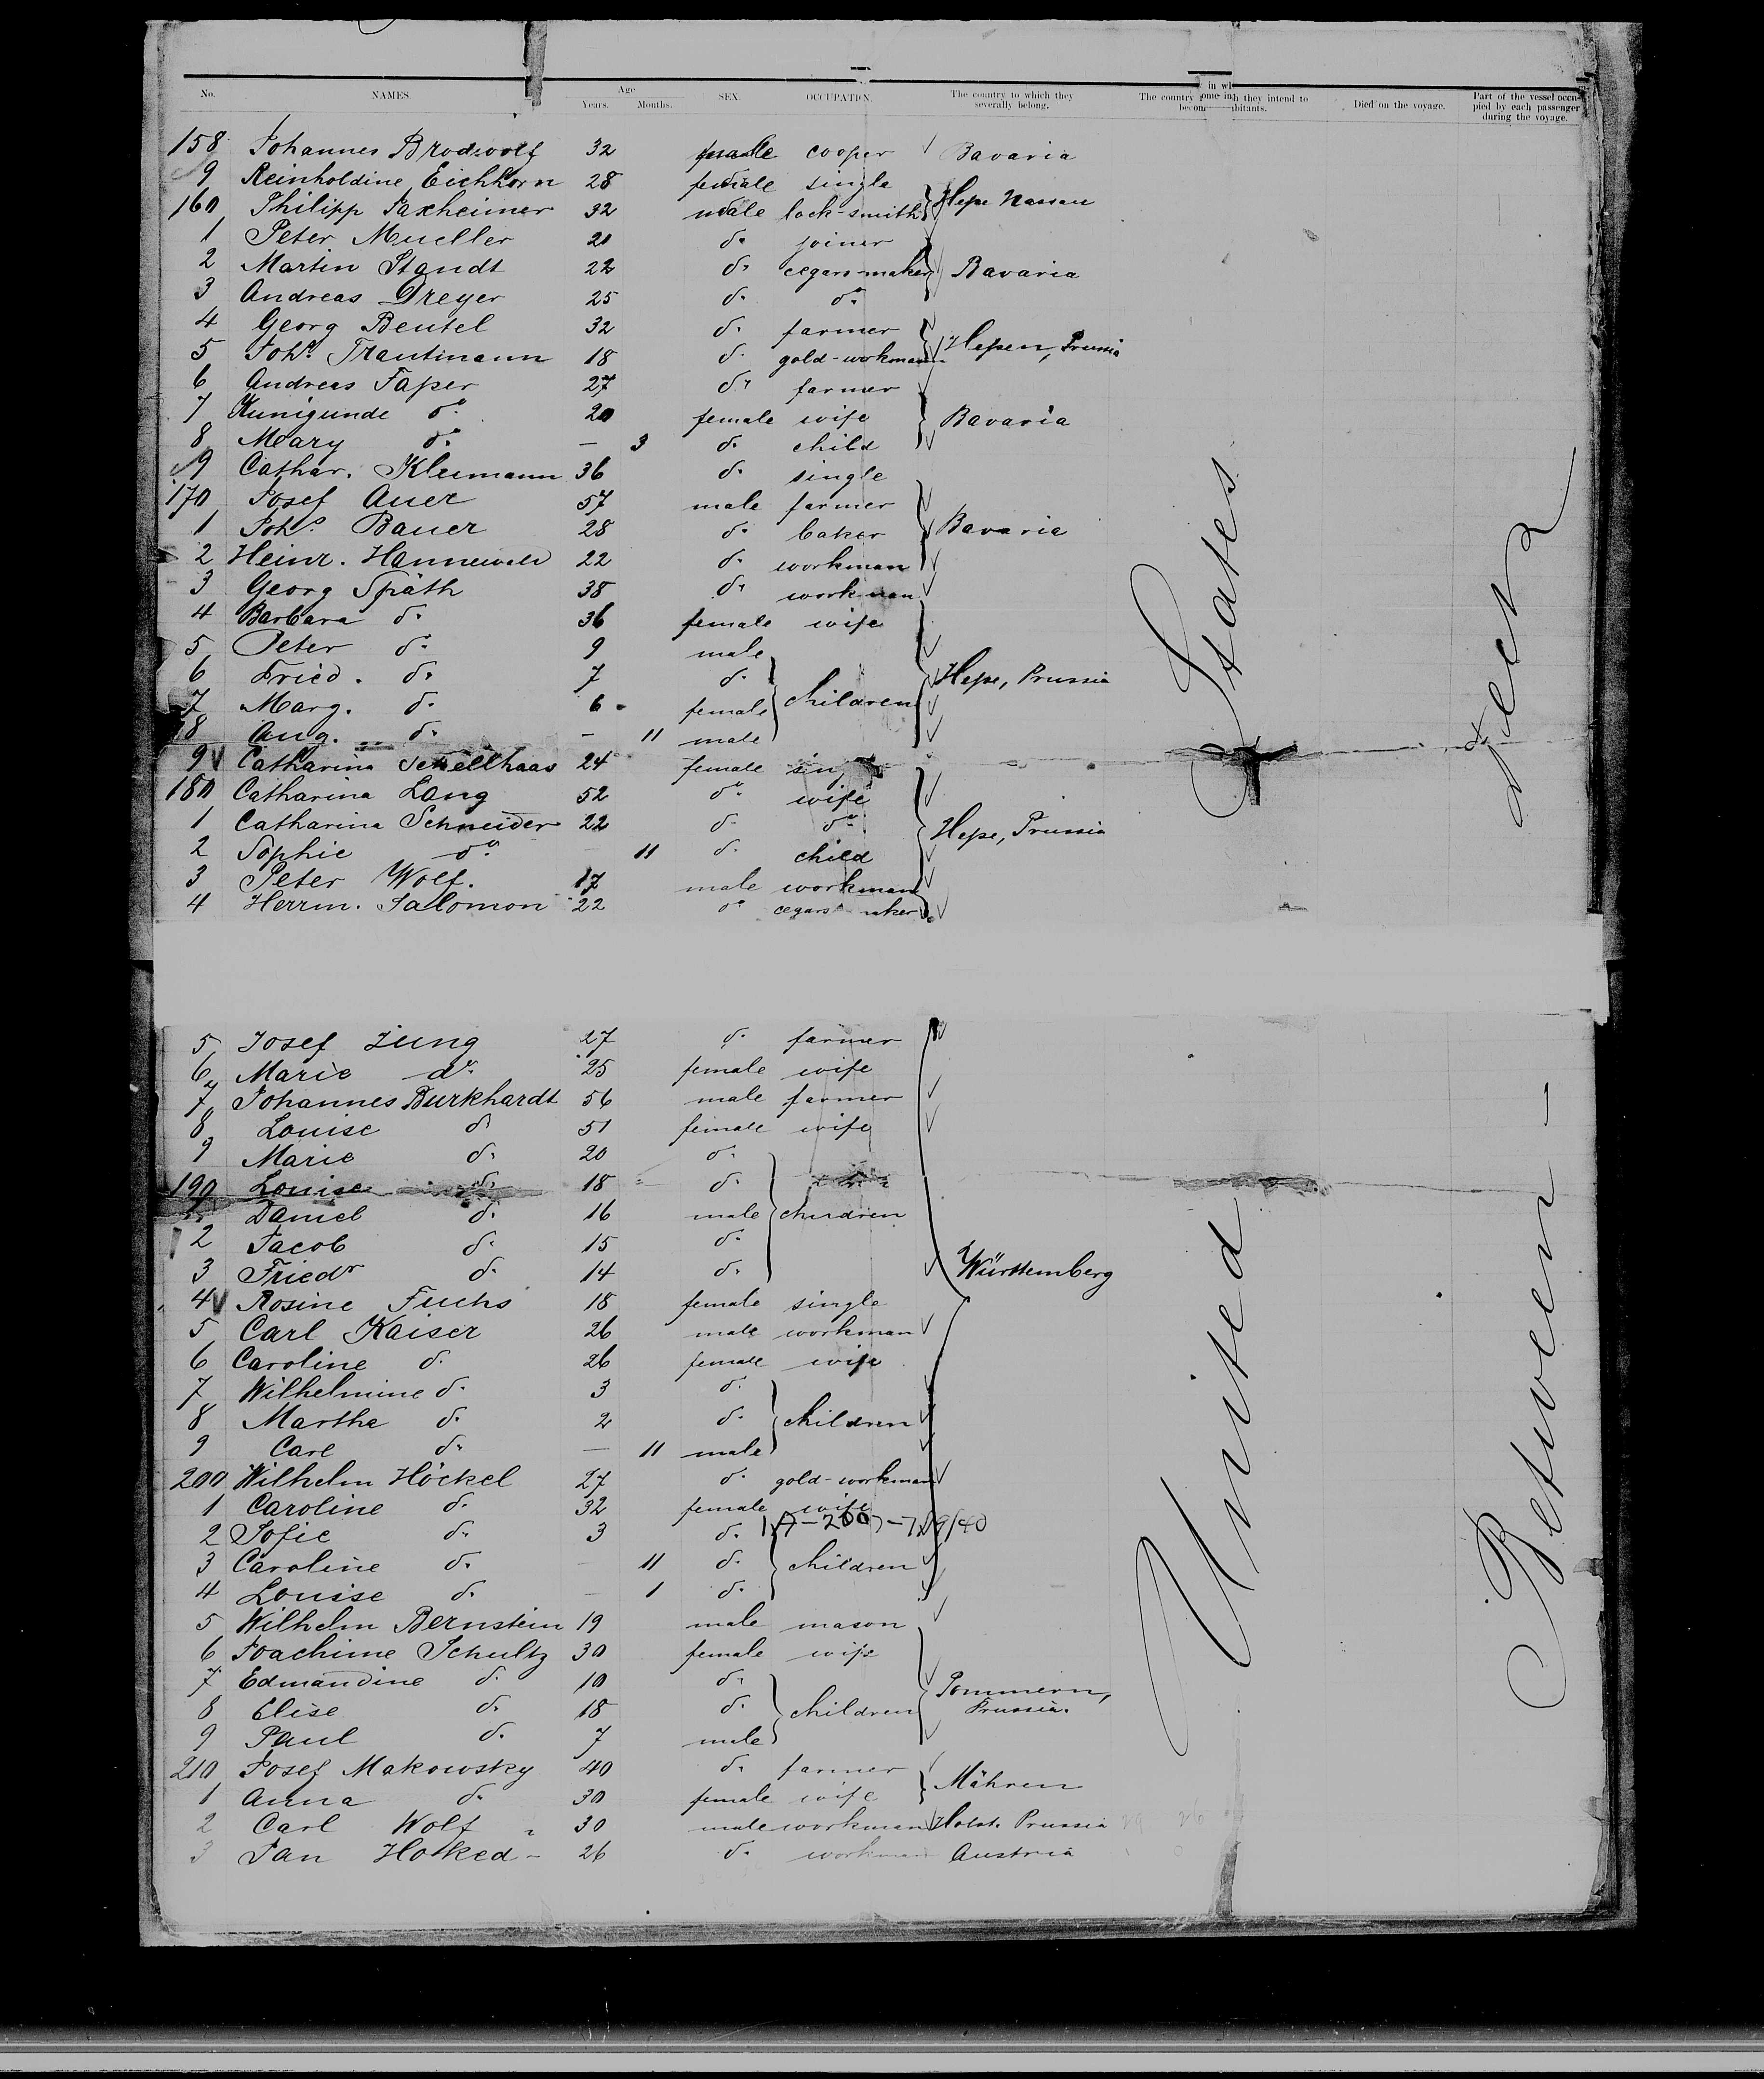 No. NAMES Age Years. Months. SEX. OCCUPATION. The country to which they severally belong. The country in wh they intend to become inhabitants. Died on the voyage. Part of the vessel occupied by each passenger during the voyage.
158 Johannes Brodwolf 32 male cooper Bavaria
9 Reinholdine Eichhorn 28 female single
160 Philipp Saxheimer 32 male lock-smith Heße Nassau
1 Peter Mueller 21 do joiner
2 Martin Standt 22 do cegars-maker Bavaria
3 Andreas Dreyer 25 do do
4 Georg Beutel 32 do farmer
5 Johs. Trautmann 18 do gold-workmann Heßen, Prussia
6 Andreas Faßer 27 do farmer
7 Kunigunde do 20 female wife Bavaria
8 Mary do — 3 do child
9 Cathar. Kleemann 36 do single
170 Josef Auer 57 male farmer
1 Johs. Bauer 28 do baker Bavaria
2 Heinr. Hannewald 22 do workman
3 Georg Späth 38 do workman
4 Barbara do 36 female wife
5 Peter do 9 male
6 Fried. do 7 do Heße, Prussia
7 Marg. do 6 female children
8 Aug. do — 11 male
9 Catharina Schellhaas 24 female
180 Catharina Lang 52 do wife
1 Catharina Schneider 22 do do Heße, Prussia
2 Sophie do 11 do child
3 Peter Wolf. 17 male workman
4 Herrm. Salomon 22 do cegars maker
5 Josef Jung 27 do farmer
6 Marie do 25 female wife
7 Johannes Burkhardt 56 male farmer
8 Louise do 51 female wife
9 Marie do 20 do
190 Louise do 18 do
Daniel do 16 male children
2 Jacob do 15 do
3 Friedr do 14 do Württemberg
4 Rosine Fuchs 18 female single
5 Carl Kaiser 26 male workman
6 Caroline do 26 female wife
7 Wilhelmine do 3 do
8 Martha do 2 do children
9 Carl do — 11 male
200 Wilhelm Höckel 27 do gold-workman
1 Caroline do 32 female wife
2 Sofie do 3 do
3 Caroline do — 11 do children
4 Louise do — 1 do
5 Wilhelm Bernstein 19 male mason
6 Joachime Schultz 30 female wife
7 Edmandine do 10 do Pommern,
8 Elise do 18 do children Prussia.
9 Paul do 7 male
210 Josef Makowsky 40 do farmer
1 Anna do 30 female wife Mähren
2 Carl Wolf 30 male workman Holst. Prussia
3 Jan Hotked 26 do workman Austria
United States
Between deck